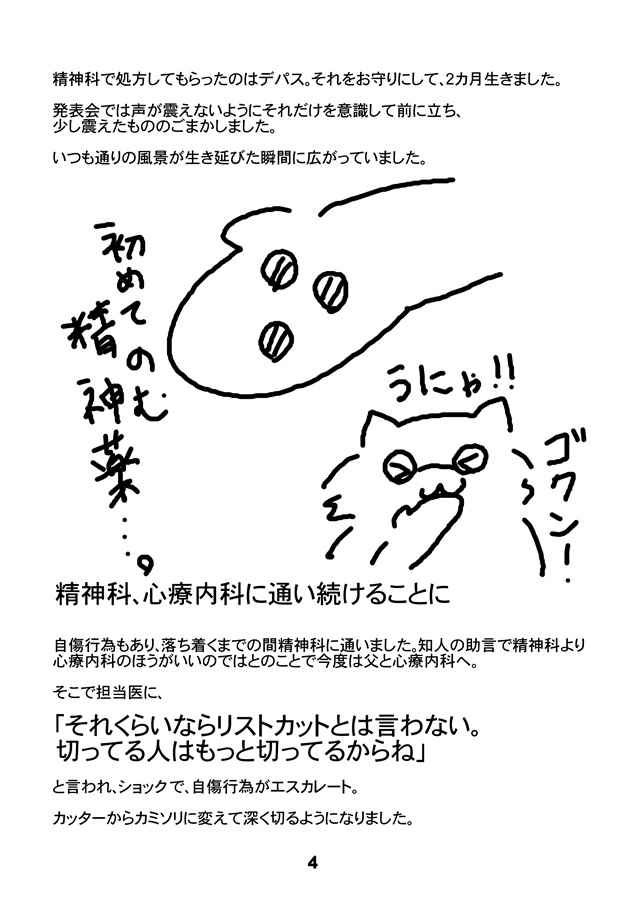 精神科で処方してもらったのはデパス。それをお守りにして、2カ月生きました。
発表会では声が震えないようにそれだけを意識して前に立ち、
少し震えたもののごまかしました。
いつも通りの風景が生き延びた瞬間に広がっていました。
初めてのむ
精神薬…。
うにゃ!!
ゴクン!
精神科、心療内科に通い続けることに
自傷行為もあり、落ち着くまでの間精神科に通いました。知人の助言で精神科より
心療内科のほうがいいのではとのことで今度は父と心療内科へ。
そこで担当医に、
「それくらいならリストカットとは言わない。
切ってる人はもっと切ってるからね」
と言われ、ショックで、自傷行為がエスカレート。
カッターからカミソリに変えて深く切るようになりました。
4